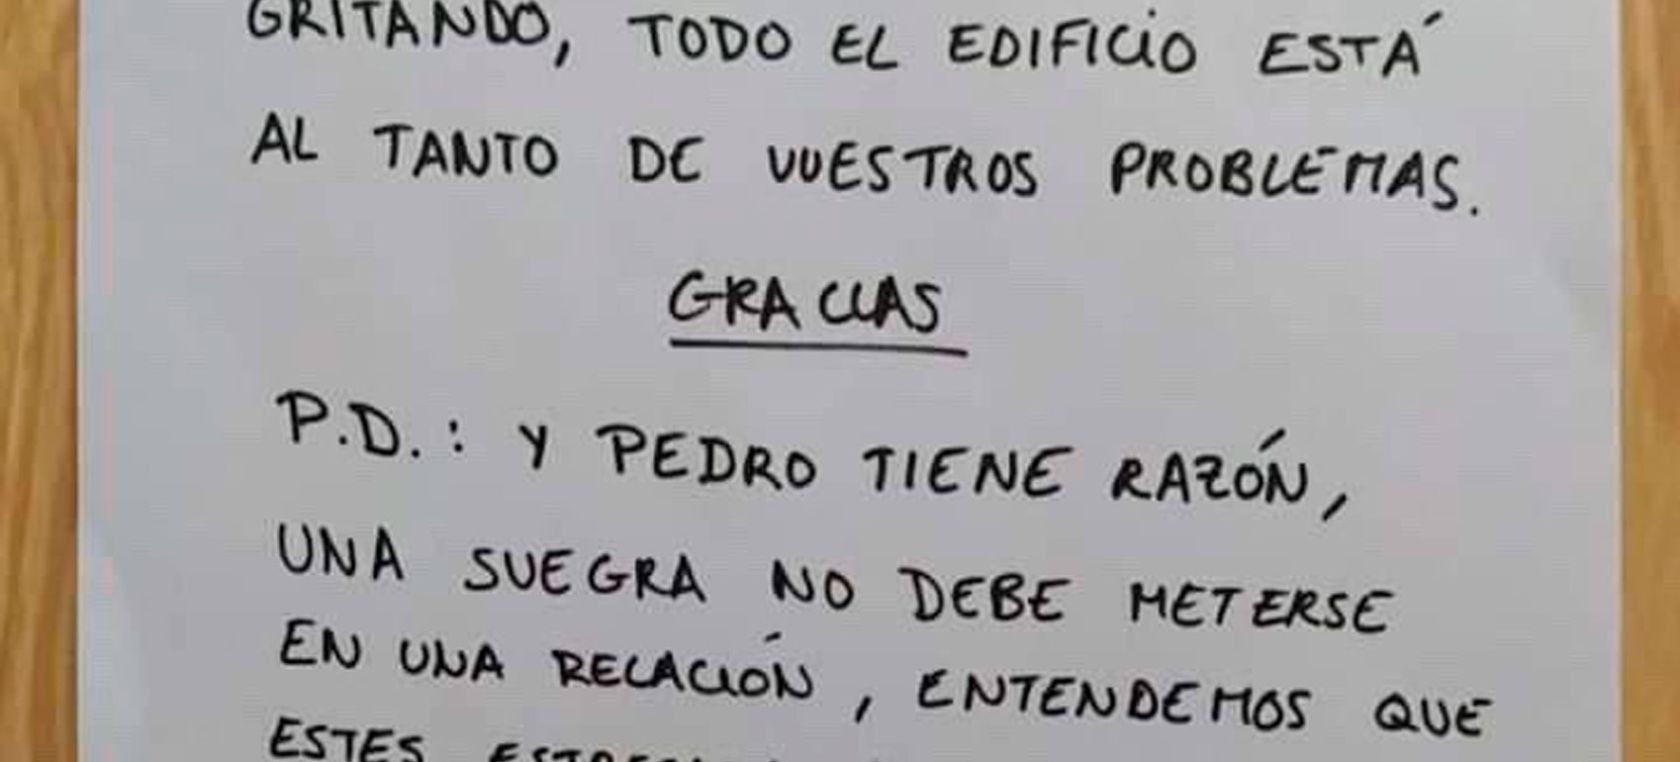 GRITANDO, TODO EL EDIFICIO ESTÁ
AL TANTO DE VUESTROS PROBLEMAS.
GRACIAS
P.D.: Y PEDRO TIENE RAZÓN,
UNA SUEGRA NO DEBE METERSE
EN UNA RELACIÓN, ENTENDEMOS QUE
ESTES